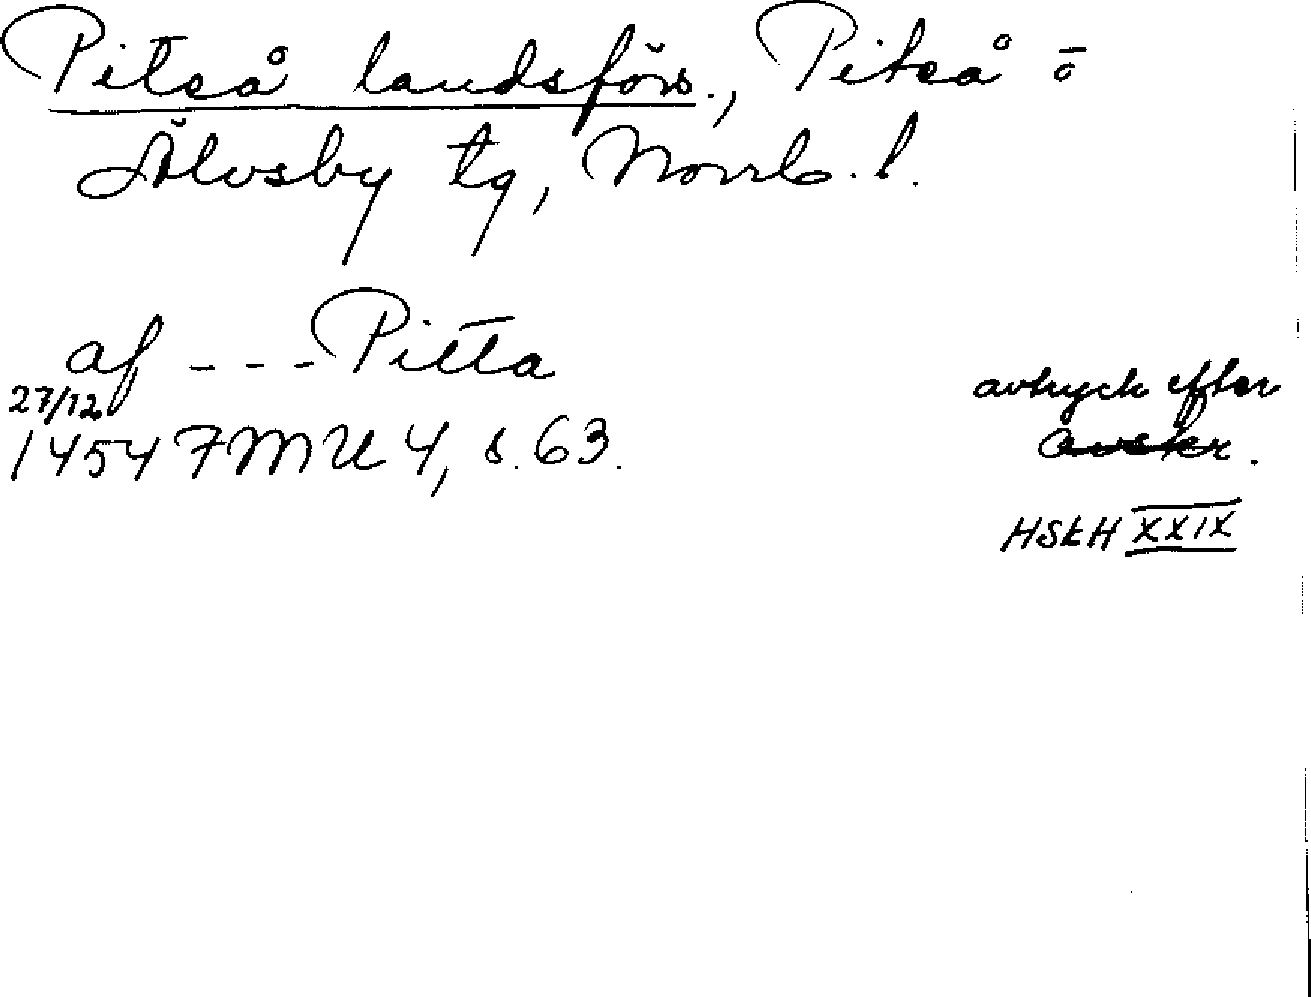 Piteå landsförs., Piteå o
Älvsby tg, Norrb. l.
af - - - Pitta
27/12
1454 FMU 4, s. 63.
avtryck efter
avskr.
HSkH XXIX